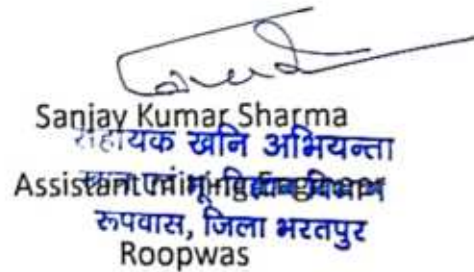 Sanjay Kumar Sharma
सहायक खनि अभियन्ता
Assistant mining Engineer
खान एवं भू विज्ञान विभाग
रूपवास, जिला भरतपुर
Roopwas